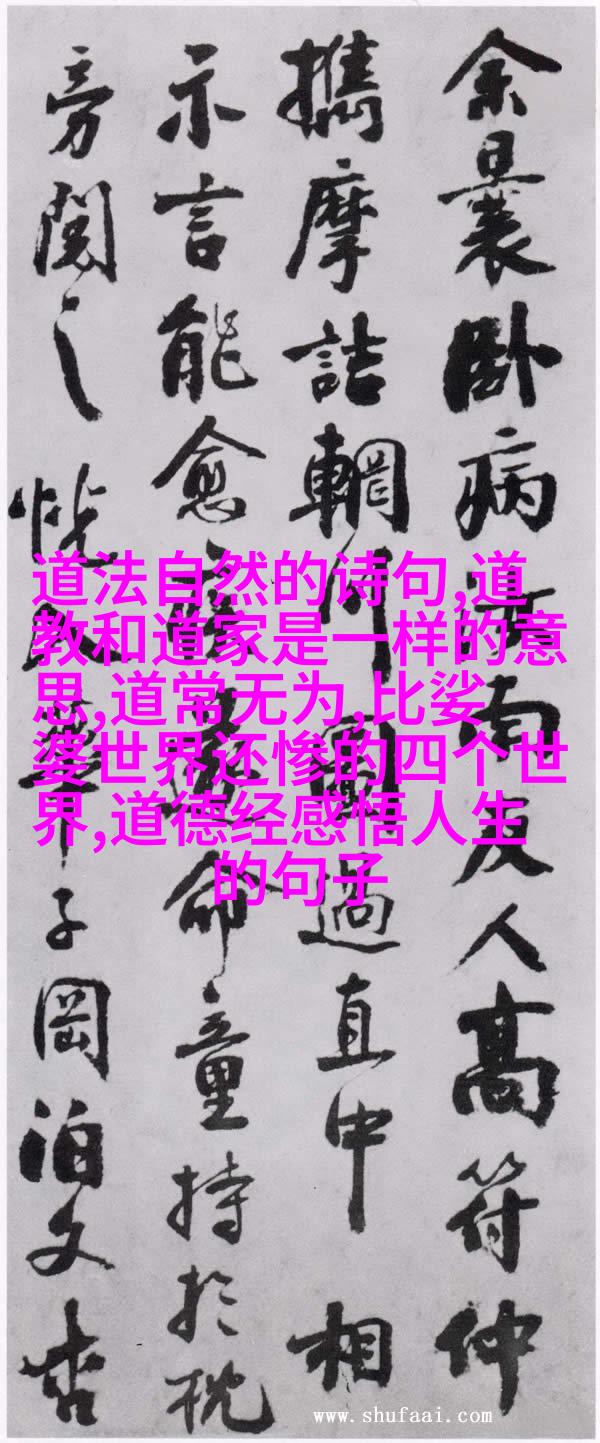 余曩卧病汝南友人高符仲
攜摩詰輞川圖過直中相
示言能愈疾遂命童持於枕
旁閱之恍入華子岡泊文杏
道法自然的诗句,道
教和道家是一样的意
思,道常无为,比娑
婆世界还惨的四个世
界,道德经感悟人生
的句子
www.shufaai.com